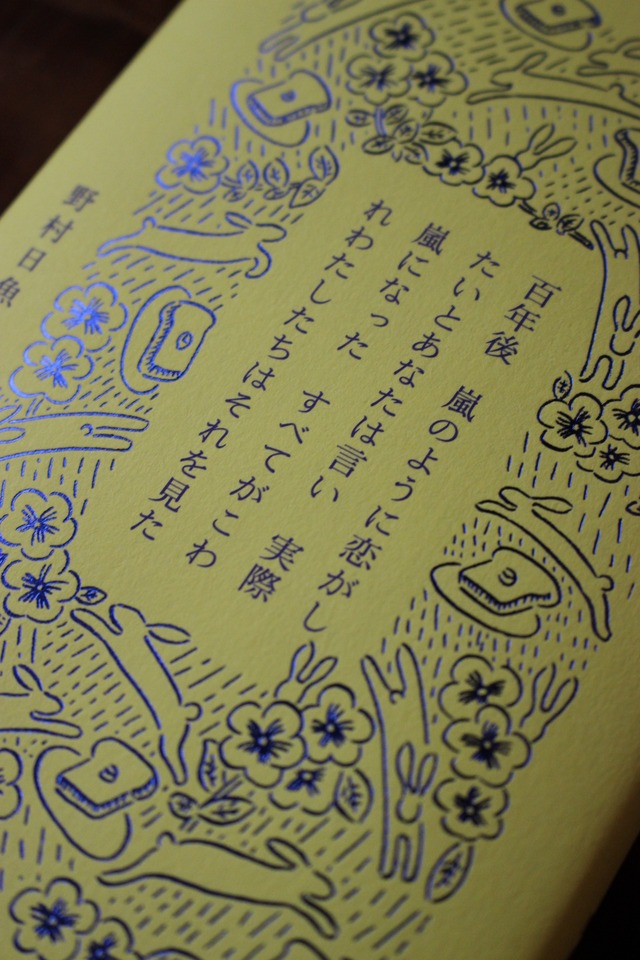 百年後　嵐のように恋がし
たいとあなたは言い　実際
嵐になった　すべてがこわ
れわたしたちはそれを見た
野村日魚